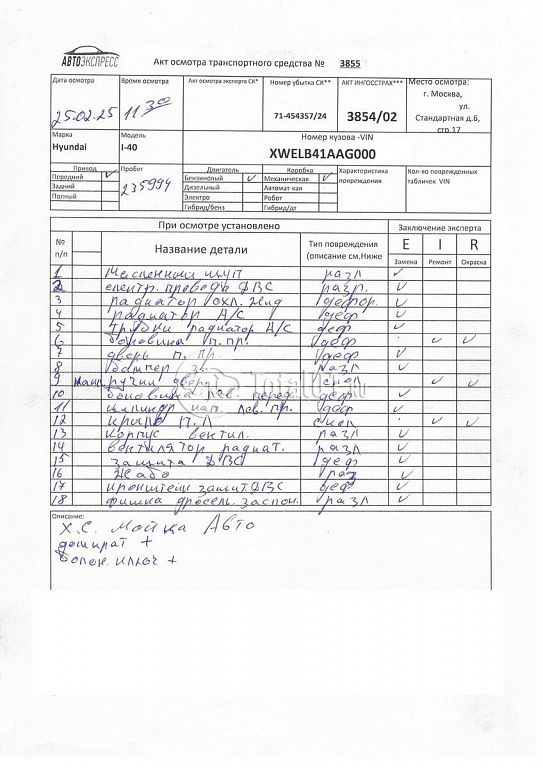 АВТОЭКСПРЕСС
Акт осмотра транспортного средства № 3855
Дата осмотра Время осмотра Акт осмотра эксперта СК* Номер убытка СК** АКТ ИНГОССТРАХ*** Место осмотра:
г. Москва,
25.02.25 11 30 71-454357/24 3854/02 ул.
Стандартная д.6,
стр.17
Марка Модель Номер кузова -VIN
Hyundai I-40 XWELB41AAG000
Привод Пробег Двигатель Коробка Характеристика повреждения Кол-во поврежденных табличек VIN
Передний V 235994 Бензиновый V Механическая V
Задний Дизельный Автомат-кая
Полный Электро Робот
Гибрид/бенз Гибрид/дт
При осмотре установлено Заключение эксперта
№ п/п Название детали Тип повреждения (описание см.Ниже E I R
Замена Ремонт Окраска
1 Масленный щуп разл V
2 електр. проводка ДВС разр. V
3 радиатор охл. жид дефор. V
4 радиатор А/С деф V
5 Трубки радиатор А/С деф V
6 боковина п. пр. деф V V
7 дверь п. пр. деф V
8 бампер за разл V
9 ручки двер V V
10 боковина лев. перед. деф V
11 лев. пр. деф V
12 крыло П.Л V V
13 корпус вентил. разл V
14 вентилятор радиат. разл V
15 защита ДВС деф V
16 Жабо раз V
17 кронштейн защит.ДВС деф V
18 фишка дросель. заслон. разл V
Описание:
Х.С. Мойка Авто
домкрат +
балон. ключ +